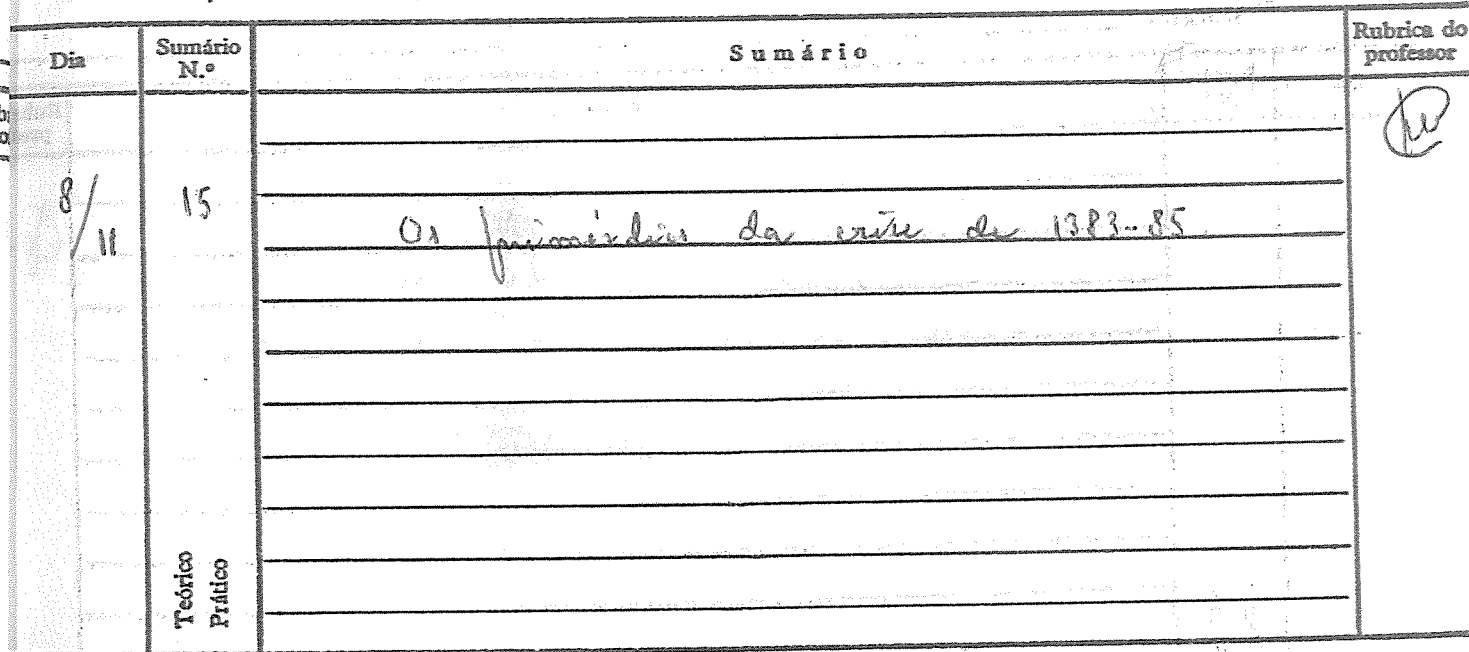 Dia
Sumário N.º
Sumário
Rubrica do professor
8/11
15
Os primórdios da crise de 1383-85
Teórico
Prático